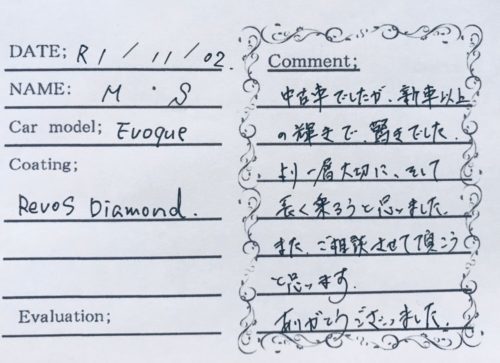 DATE; R1/11/02.
NAME: M・S
Car model; Evoque
Coating;
Revos Diamond.
Evaluation;
Comment;
中古車でしたが、新車以上
の輝きで、驚きでした。
より一層大切に、そして
長く乗ろうと思いました。
また、ご相談させて頂こう
と思います。
ありがとうございました。